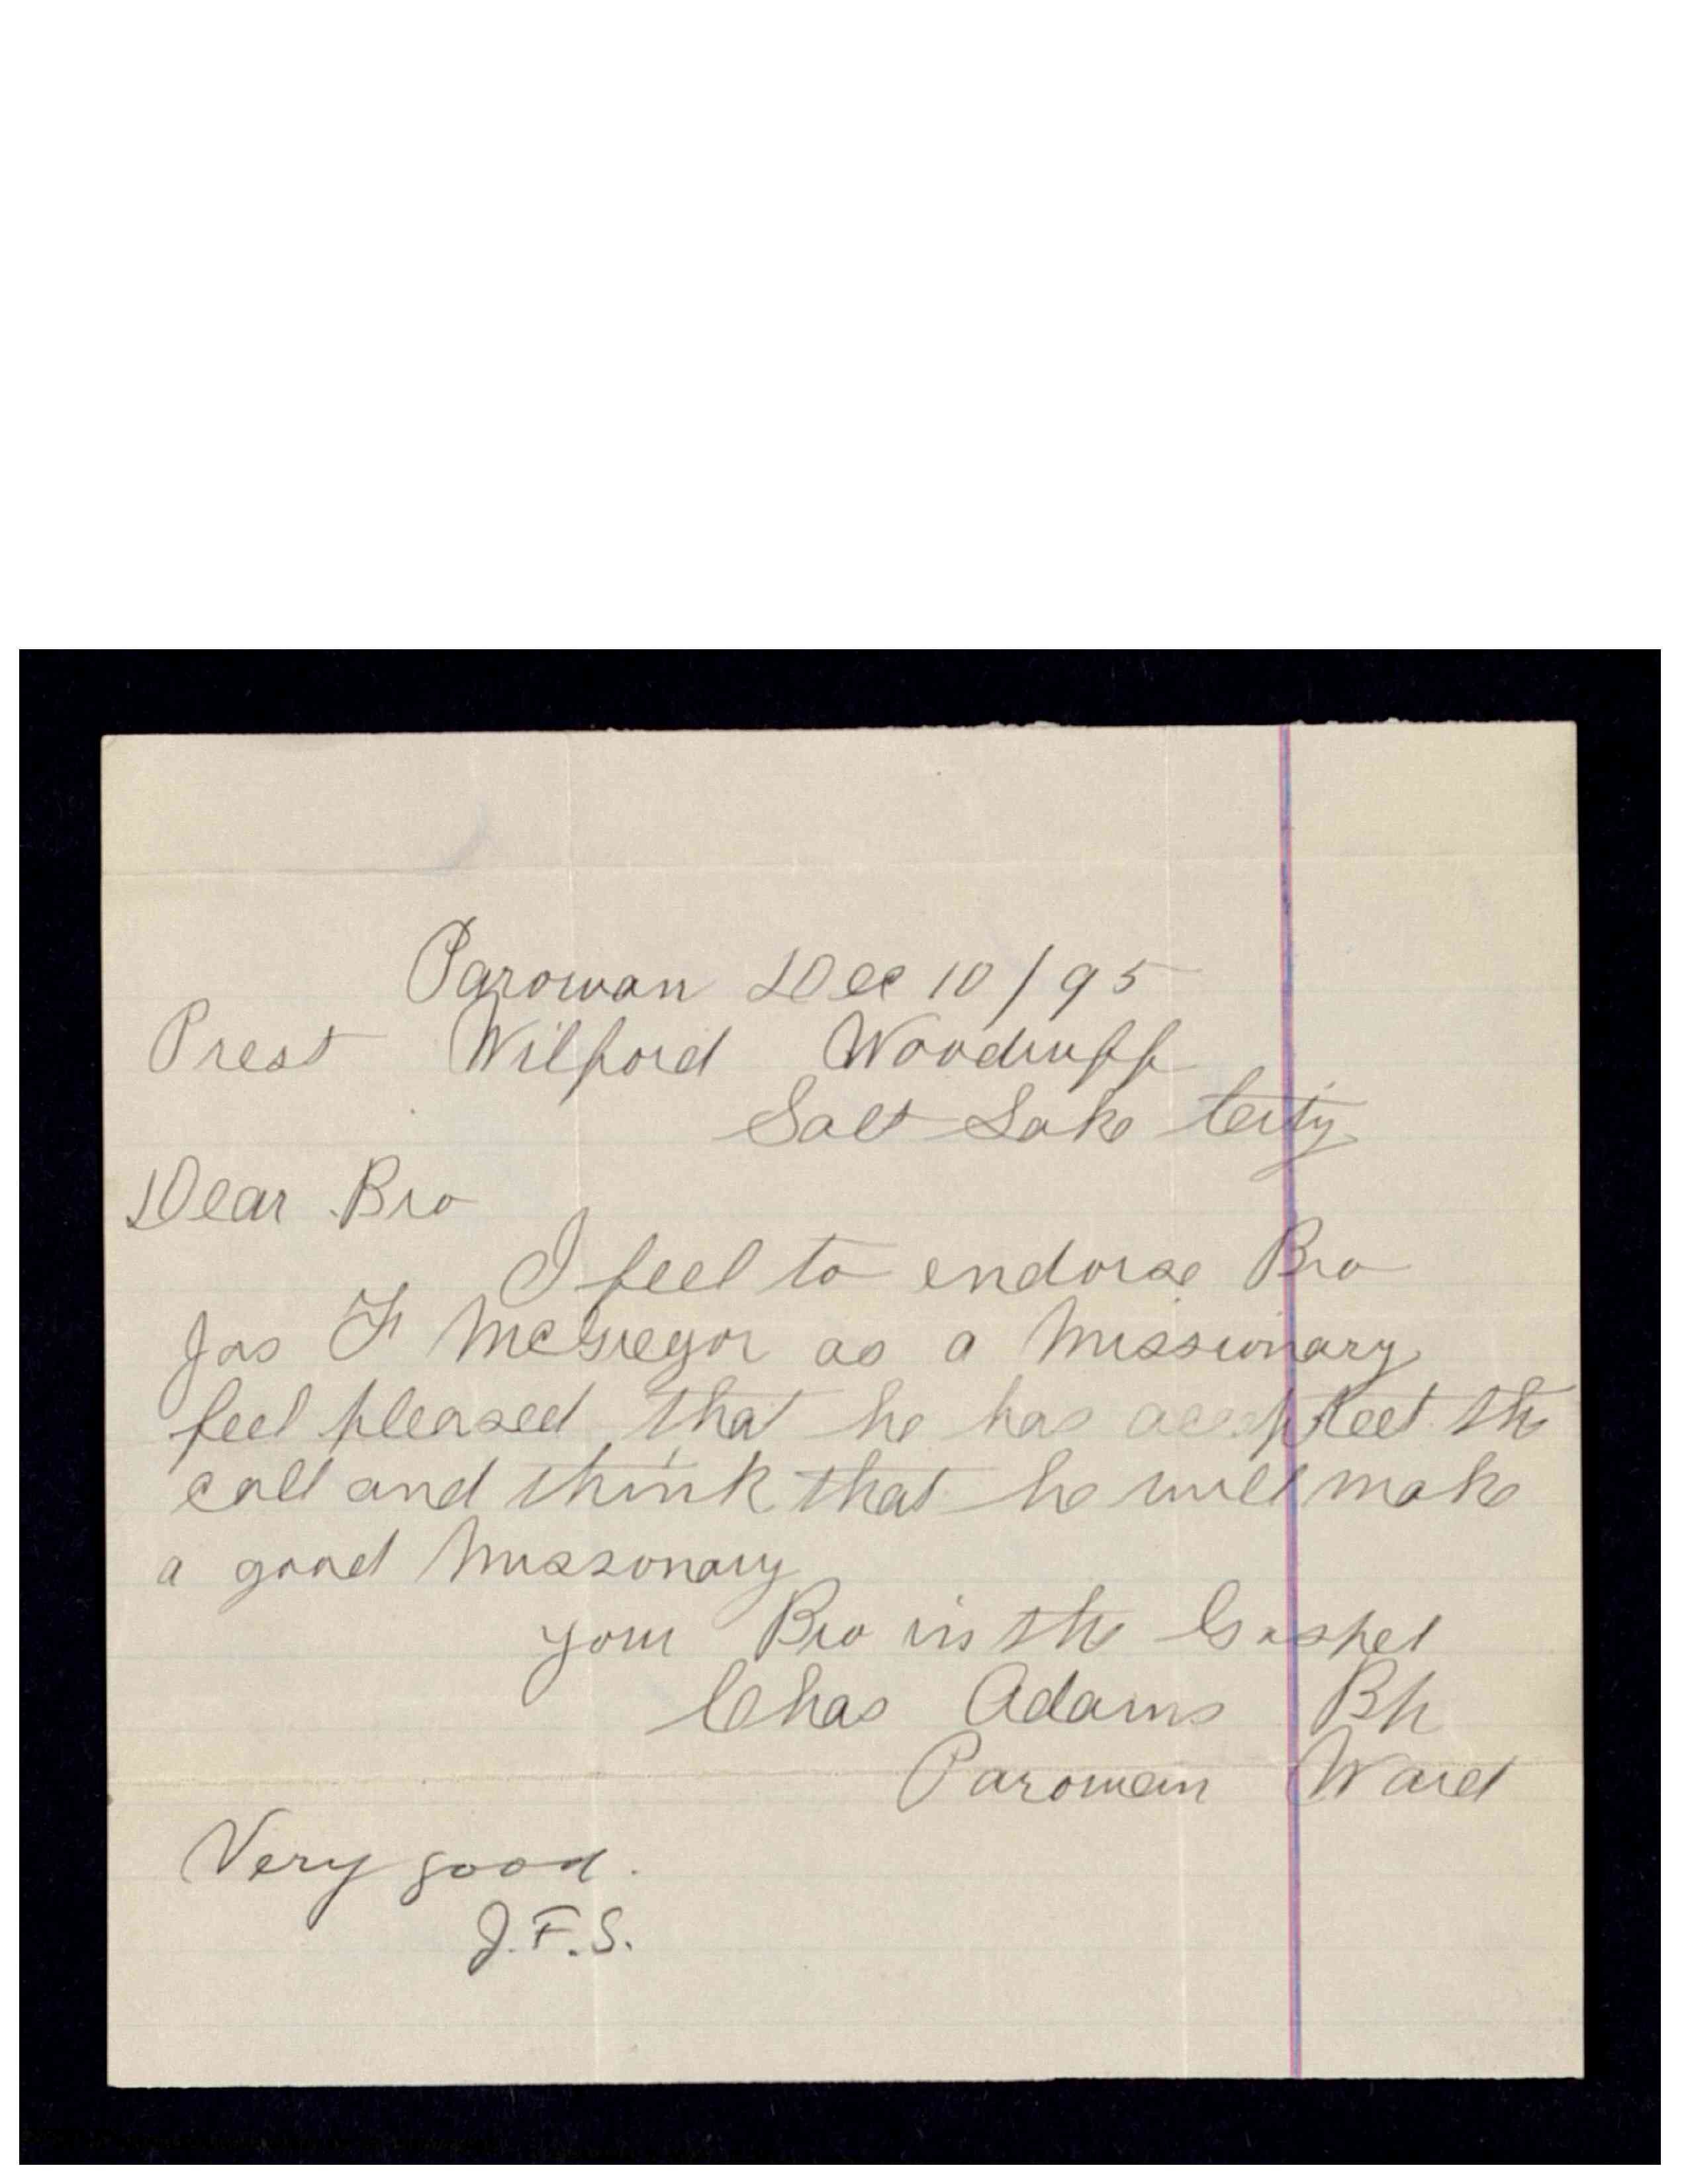 Parowan Dec 10/95
Prest Wilford Woodruff
Salt Lake City
Dear Bro
I feel to endorse Bro
Jas F McGregor as a Missionary
feel pleased that he has accepted the
call and think that he will make
a good Missonary
your Bro in the Gospel
Chas Adams Bp
Parowan Ward
Very good.
J.F.S.